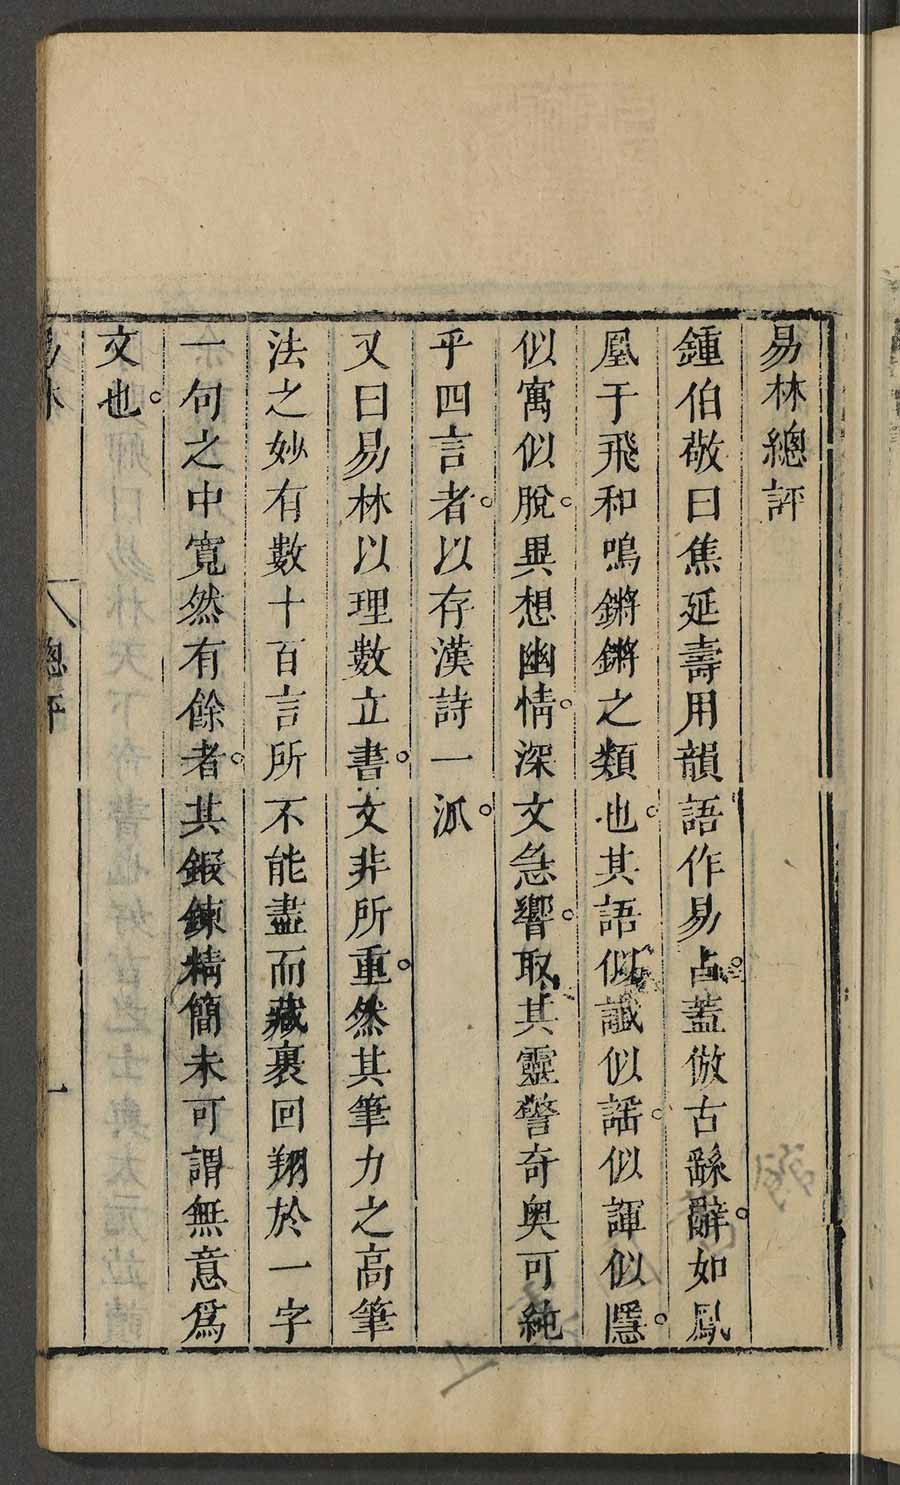 易林總評
鍾伯敬曰焦延壽用韻語作易占。蓋倣古繇辭。如鳳
凰于飛和鳴鏘鏘之類也。其語似讖似謠。似諢似隱。
似寓似脫。異想幽情。深文急響。取其靈警奇奧可純
乎四言者。以存漢詩一派。
又曰易林以理數立書。文非所重。然其筆力之高筆
法之妙有數十百言所不能盡而藏裹回翔於一字
一句之中寬然有餘者。其鍜鍊精簡未可謂無意為
文也。
易林
總評
一